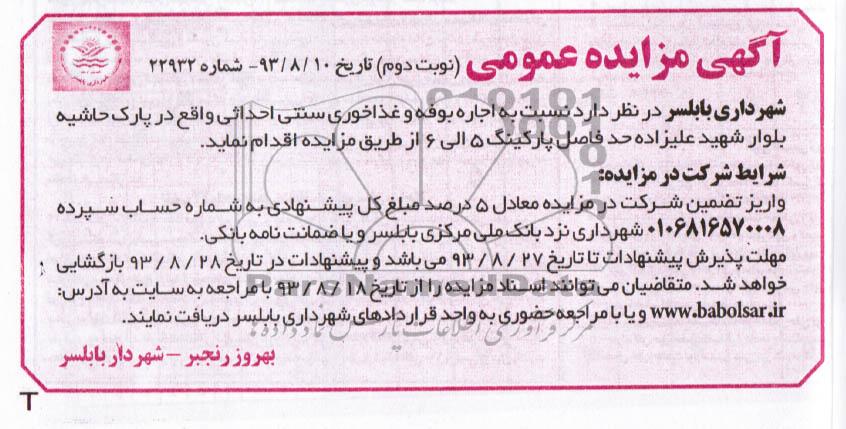 آگهی مزایده عمومی (نوبت دوم) تاریخ ۹۳/۸/۱۰- شماره ۲۲۹۳۲
شهرداری بابلسر در نظر دارد نسبت به اجاره بوفه و غذاخوری سنتی احداثی واقع در پارک حاشیه
بلوار شهید علیزاده حد فاصل پارکینگ ۵ الی ۶ از طریق مزایده اقدام نماید.
شرایط شرکت در مزایده:
واریز تضمین شرکت در مزایده معادل ۵ درصد مبلغ کل پیشنهادی به شماره حساب سپرده
۰۱۰۶۸۱۶۵۷۰۰۰۸ شهرداری نزد بانک ملی مرکزی بابلسر و یا ضمانت نامه بانکی.
مهلت پذیرش پیشنهادات تا تاریخ ۹۳/۸/۲۷ می باشد و پیشنهادات در تاریخ ۹۳/۸/۲۸ بازگشایی
خواهد شد. متقاضیان می توانند اسناد مزایده را از تاریخ ۹۳/۸/۱۸ با مراجعه به سایت به آدرس:
www.babolsar.ir و یا با مراجعه حضوری به واحد قراردادهای شهرداری بابلسر دریافت نمایند.
بهروز رنجبر – شهردار بابلسر
ParsNamadData
T